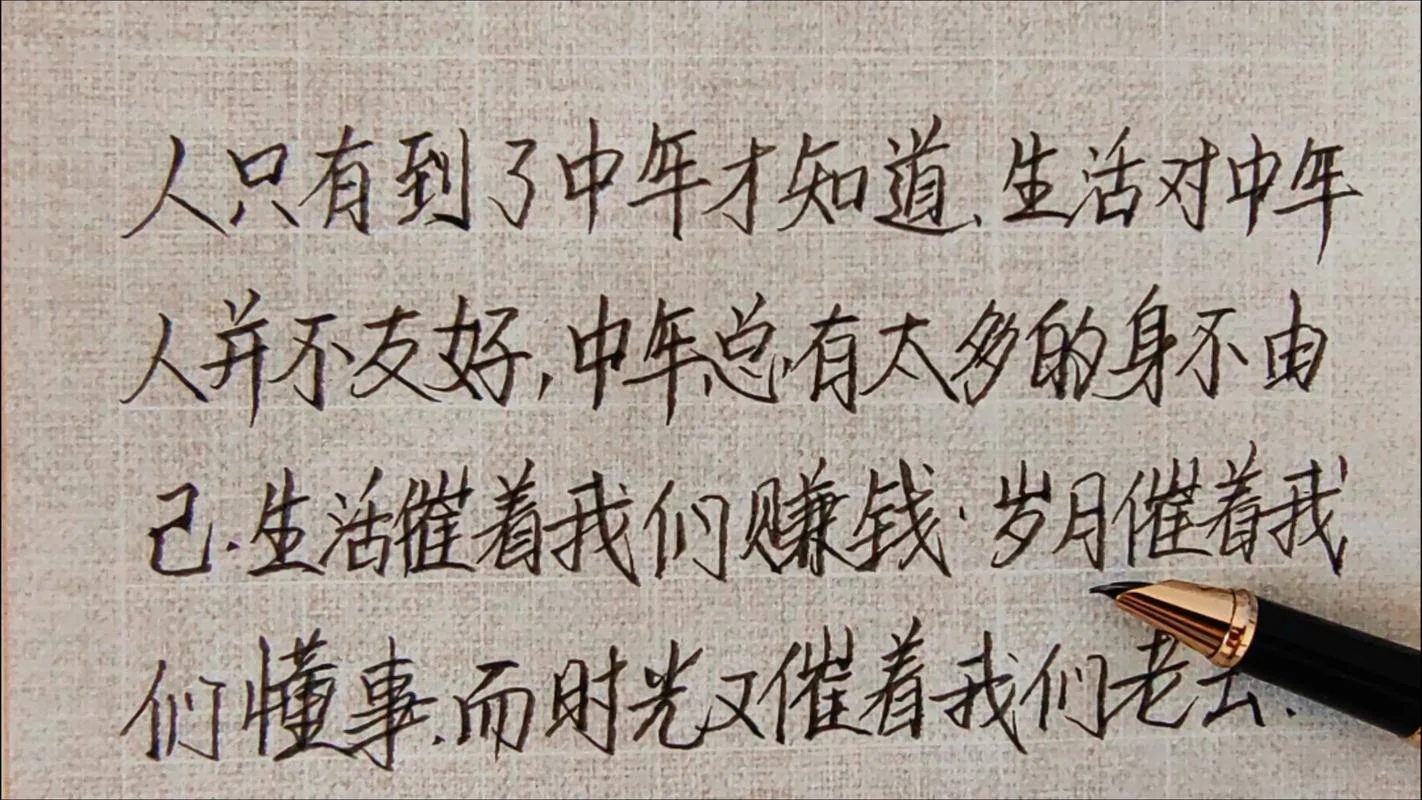 人只有到了中年才知道、生活对中年
人并不友好,中年总有太多的身不由
己.生活催着我们赚钱.岁月催着我
们懂事.而时光又催着我们老去.